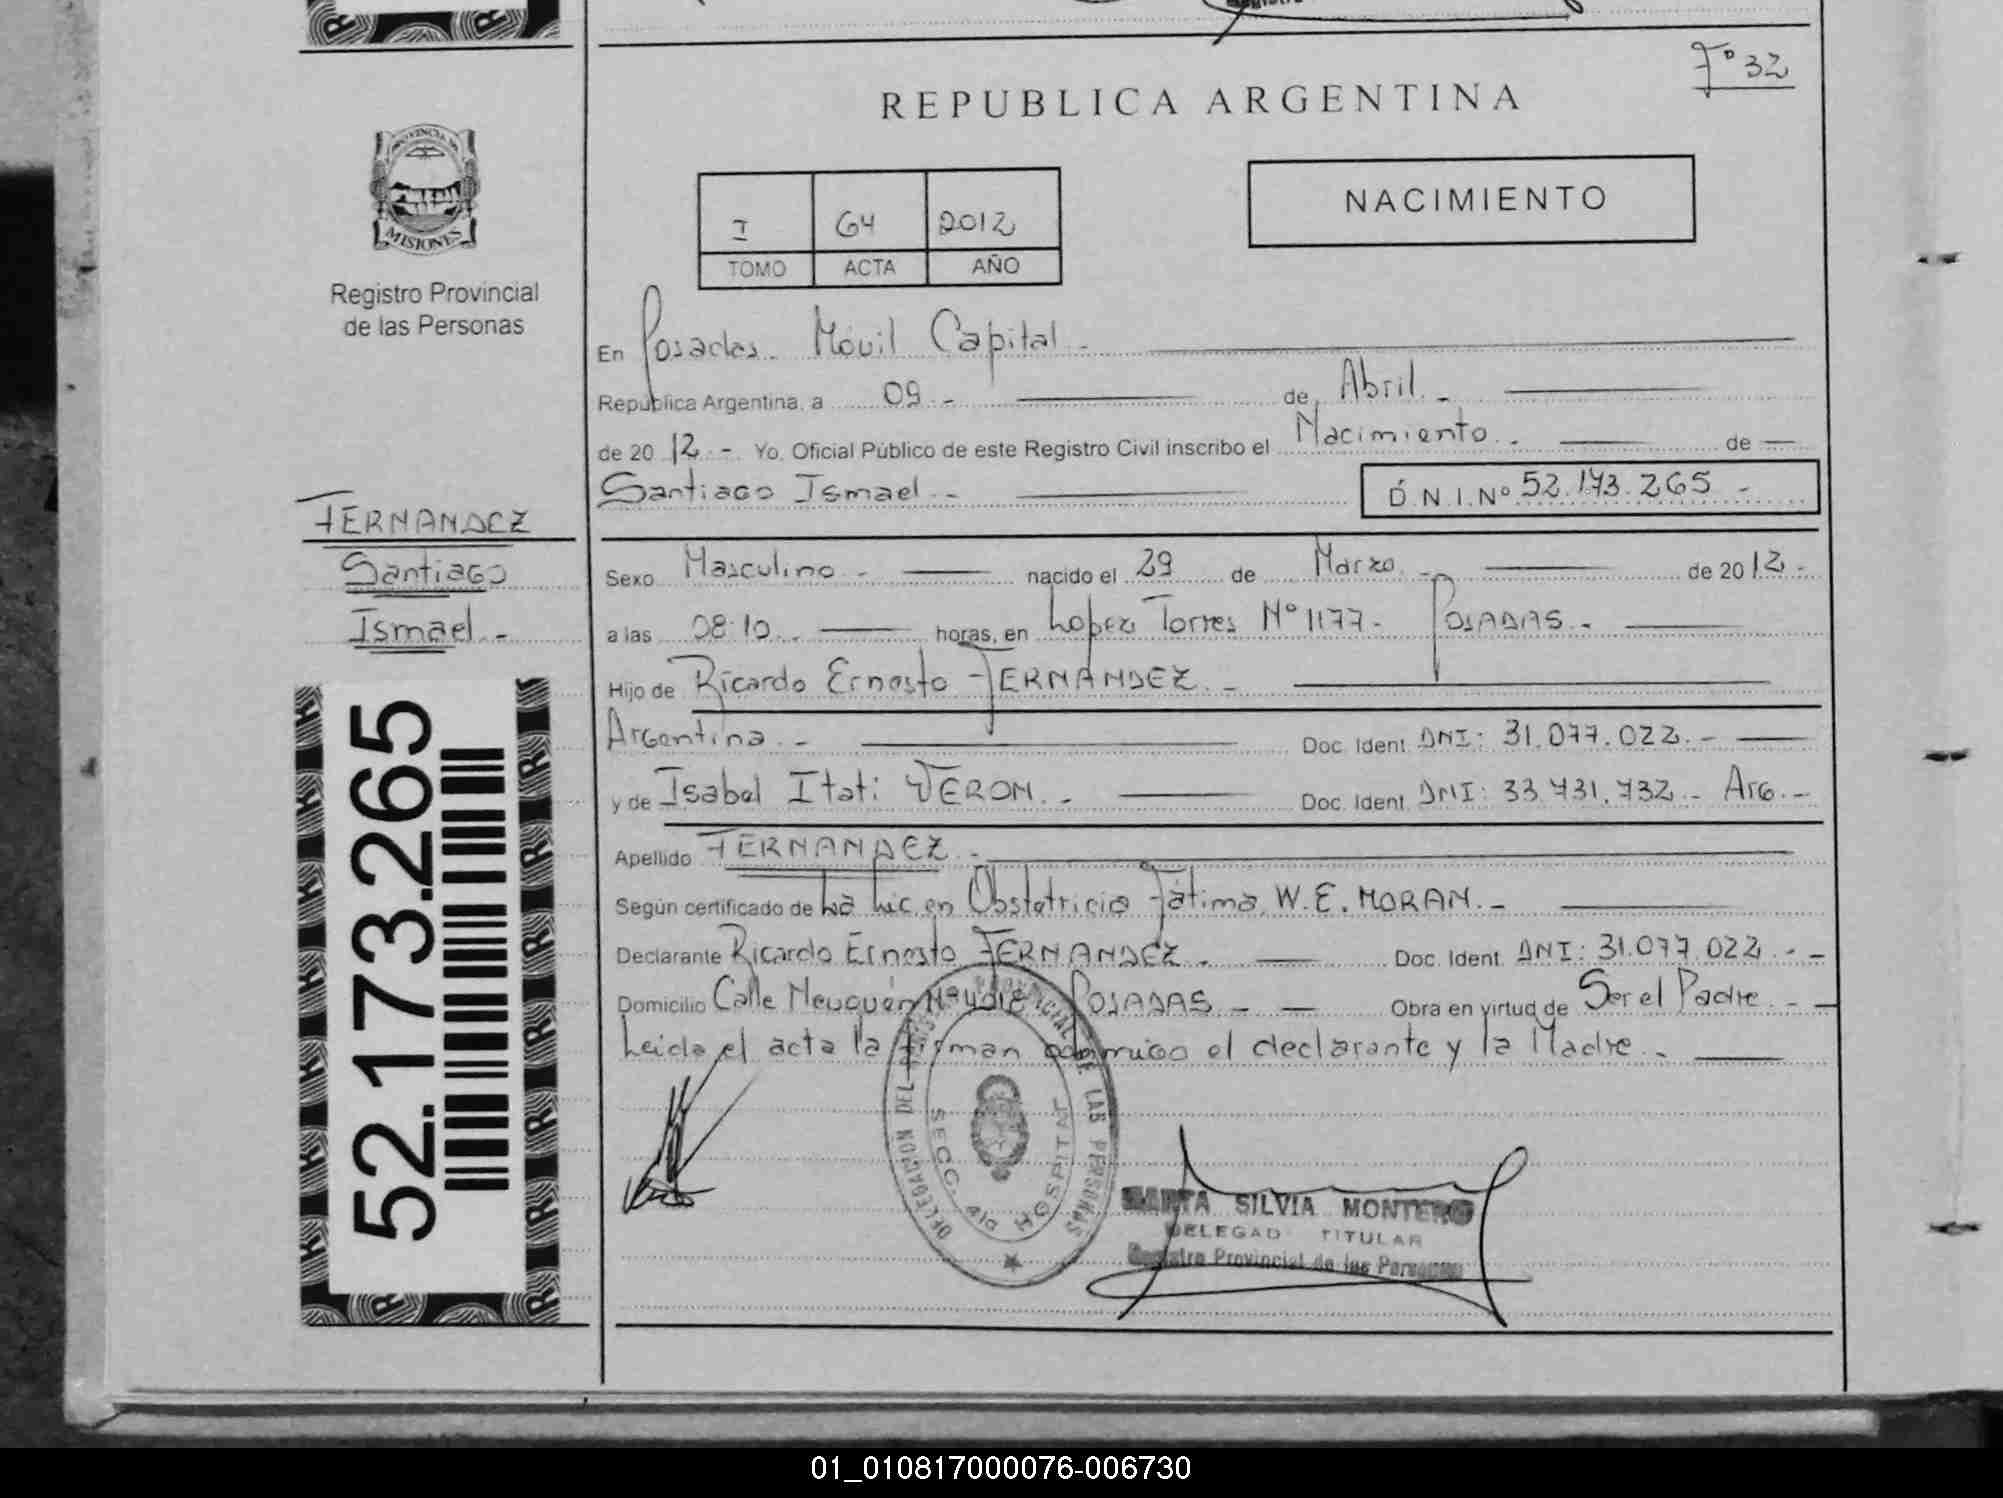 Fº 32
REPUBLICA ARGENTINA
PROVINCIA DE
MISIONES
Registro Provincial
de las Personas
NACIMIENTO
I 64 2012
TOMO ACTA AÑO
En Posadas. Móvil Capital.-
República Argentina, a 09.- de Abril.-
de 2012.- Yo, Oficial Público de este Registro Civil inscribo el Nacimiento.- de
Santiago Ismael.-
D.N.I.Nº 52.173.265 -
FERNANDEZ
Santiago
Ismael.-
Sexo Masculino.- nacido el 29 de Marzo.- de 2012.-
a las 08:10.- horas, en Lopez Torres Nº 1177.- POSADAS.-
Hijo de Ricardo Ernesto FERNANDEZ.-
Argentina.- Doc. Ident. DNI: 31.077.022.-
y de Isabel Itatí VERON.- Doc. Ident. DNI: 33.731.732.- Arg.-
Apellido FERNANDEZ.-
Según certificado de La Lic. en Obstetricia Fátima W.E. MORAN.-
Declarante Ricardo Ernesto FERNANDEZ.- Doc. Ident. DNI: 31.077.022.-
Domicilio Calle Neuquén Nº POSADAS.- Obra en virtud de Ser el Padre.-
Leida el acta la firman conmigo el declarante y la Madre.-
52.173.265
DELEGACION DEL REGISTRO PROVINCIAL DE LAS PERSONAS
SECC. 4ta HOSPITAL
MARTA SILVIA MONTERO
DELEGAD TITULAR
Registro Provincial de las Personas
01_010817000076-006730